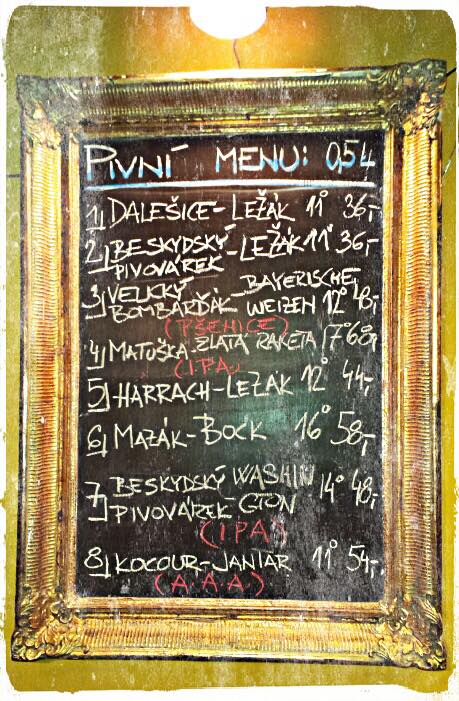 PIVNÍ MENU: 0,5L
1, DALEŠICE-LEŽÁK 11° 36,-
2, BESKYDSKÝ PIVOVÁREK -LEŽÁK 11° 36,-
3, VELKÝ BOMBARĎÁK - BAYERISCHE WEIZEN 12° 48,-
(PŠENICE)
4, MATUŠKA-ZLATÁ RAKETA 17° 68,-
(IPA)
5, HARRACH-LEŽÁK 12° 44,-
6, MAZÁK-BOCK 16° 58,-
7, BESKYDSKÝ WASHIN
PIVOVÁREK-GTON 14° 48,-
(IPA)
8, KOCOUR-JANTAR 11° 54,-
(A.A.A.)